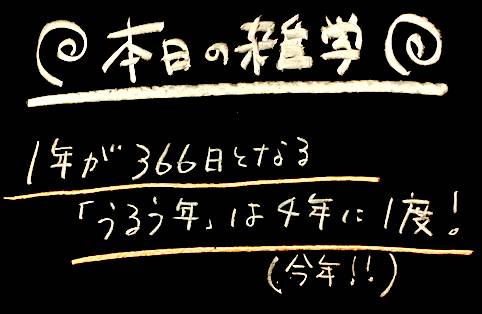 本日の雑学
1年が366日となる
「うるう年」は4年に1度!
(今年!!)